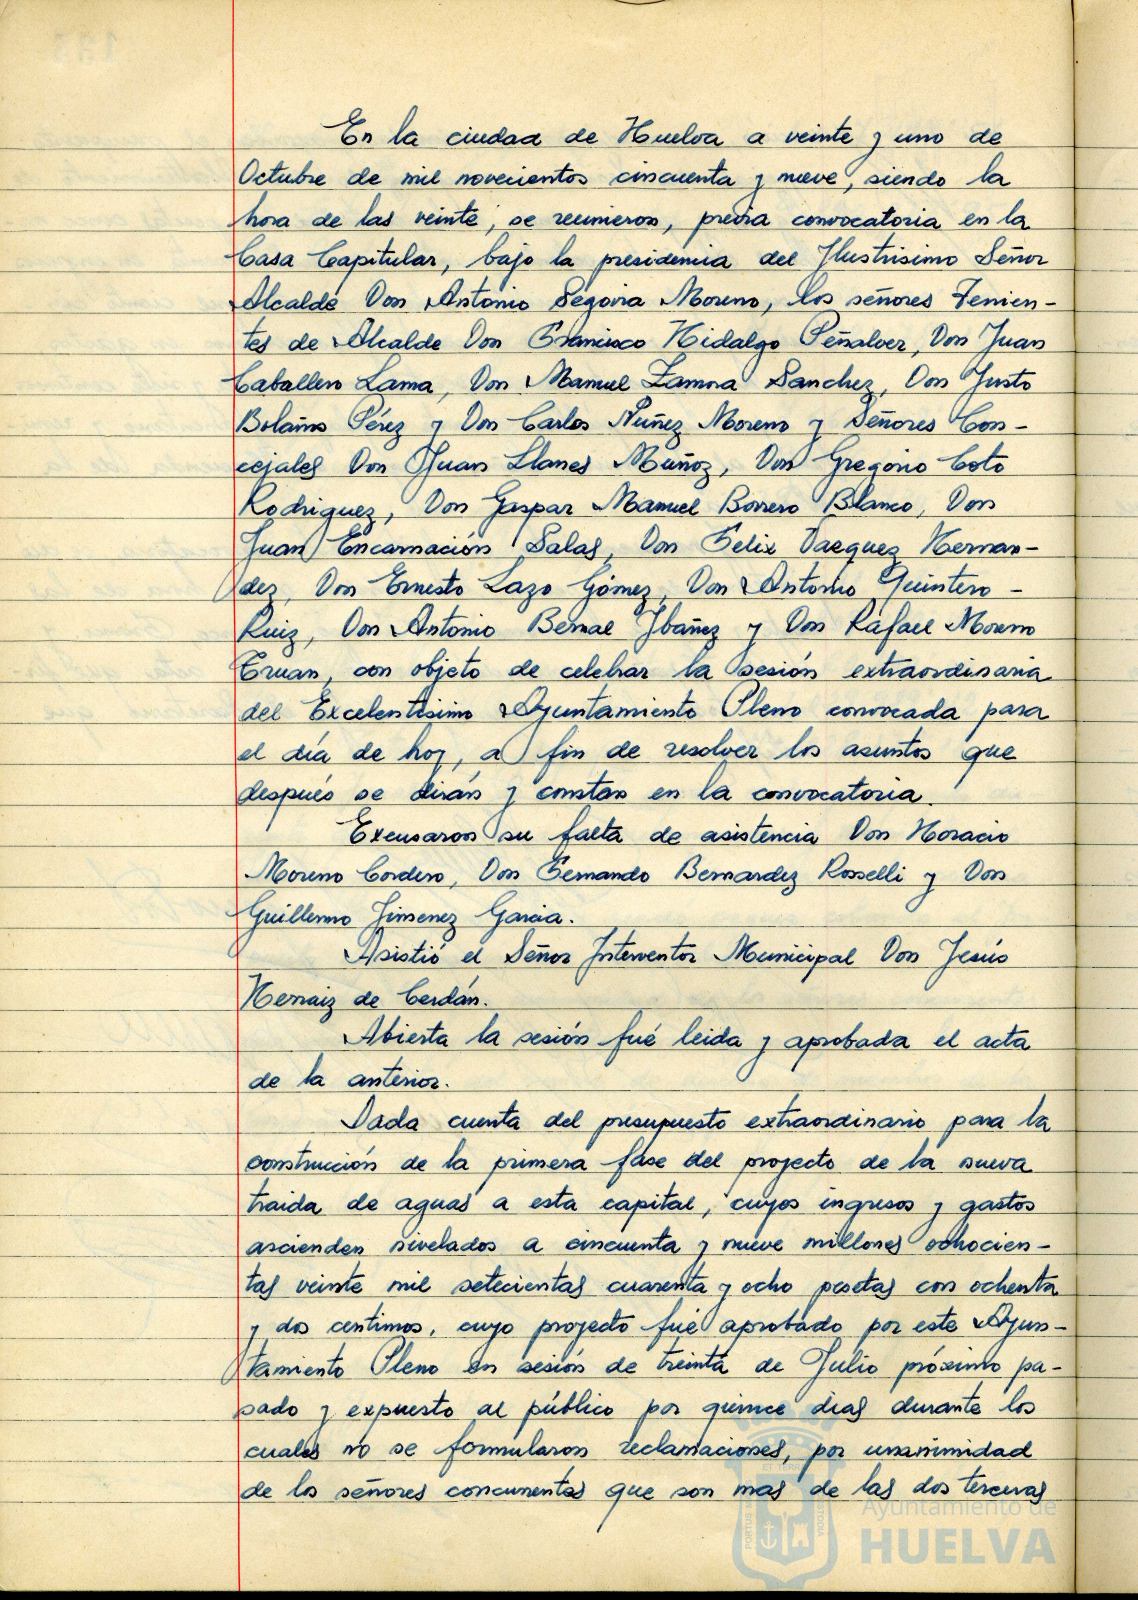 En la ciudad de Huelva a veinte y uno de
Octubre de mil novecientos cincuenta y nueve, siendo la
hora de las veinte, se reunieron, previa convocatoria en la
Casa Capitular, bajo la presidencia del Ilustrisimo Señor
Alcalde Don Antonio Segovia Moreno, los señores Tenien-
tes de Alcalde Don Francisco Hidalgo Peñalver, Don Juan
Caballero Lama, Don Manuel Zamora Sanchez, Don Justo
Bolaños Pérez y Don Carlos Nuñez Moreno y Señores Con-
cejales Don Juan Llanes Muñoz, Don Gregorio Coto
Rodriguez, Don Gaspar Manuel Borrero Blanco, Don
Juan Encarnación Salas, Don Felix Vazquez Hernan-
dez, Don Ernesto Lazo Gómez, Don Antonio Quintero
Ruiz, Don Antonio Bernal Ibañez y Don Rafael Moreno
con objeto de celebrar la sesión extraordinaria
del Excelentisimo Ayuntamiento Pleno convocada para
el día de hoy, a fin de resolver los asuntos que
después se dirán y constan en la convocatoria.
Excusaron su falta de asistencia Don Horacio
Moreno Cordero, Don Fernando Bernardez Rosselli y Don
Guillermo Jimenez Garcia.
Asistió el Señor Interventor Municipal Don Jesús
Hernaiz de Cerdán.
Abierta la sesión fué leida y aprobada el acta
de la anterior.
Dada cuenta del presupuesto extraordinario para la
construcción de la primera fase del proyecto de la nueva
traida de aguas a esta capital, cuyos ingresos y gastos
ascienden nivelados a cincuenta y nueve millones ochocien-
tas veinte mil setecientas cuarenta y ocho pesetas con ochenta
y dos centimos, cuyo proyecto fué aprobado por este Ayun-
tamiento Pleno en sesión de treinta de Julio próximo pa-
sado y expuesto al público por quince dias durante los
cuales no se formularon reclamaciones, por unanimidad
de los señores concurrentes que son mas de las dos terceras
Ayuntamiento de
HUELVA